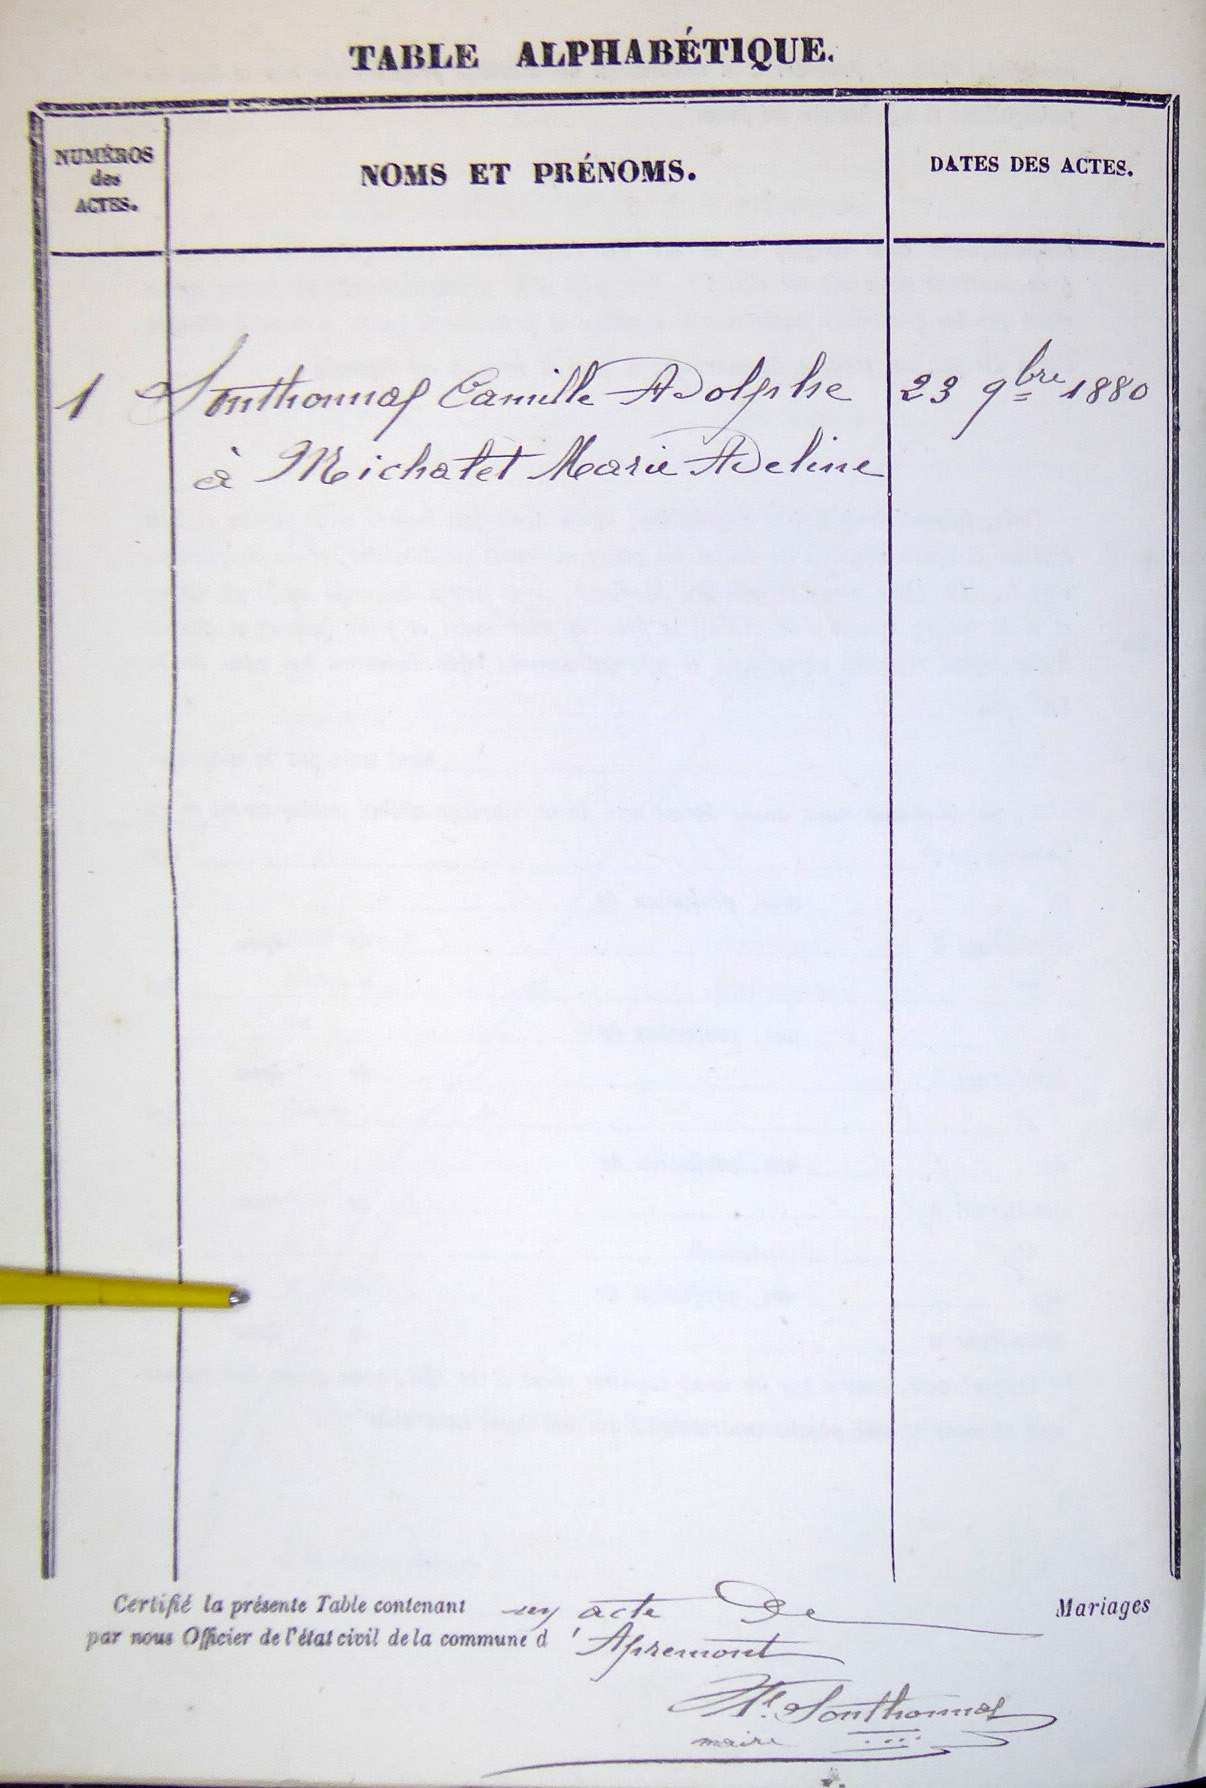 TABLE ALPHABÉTIQUE.
NUMÉROS
des
ACTES.
NOMS ET PRÉNOMS.
DATES DES ACTES.
1 Sonthonnas Camille Adolphe 23 9bre 1880
à Michalet Marie Adeline
Certifié la présente Table contenant un acte De Mariages
par nous Officier de l'état civil de la commune d'Apremont
Sonthonnas
maire